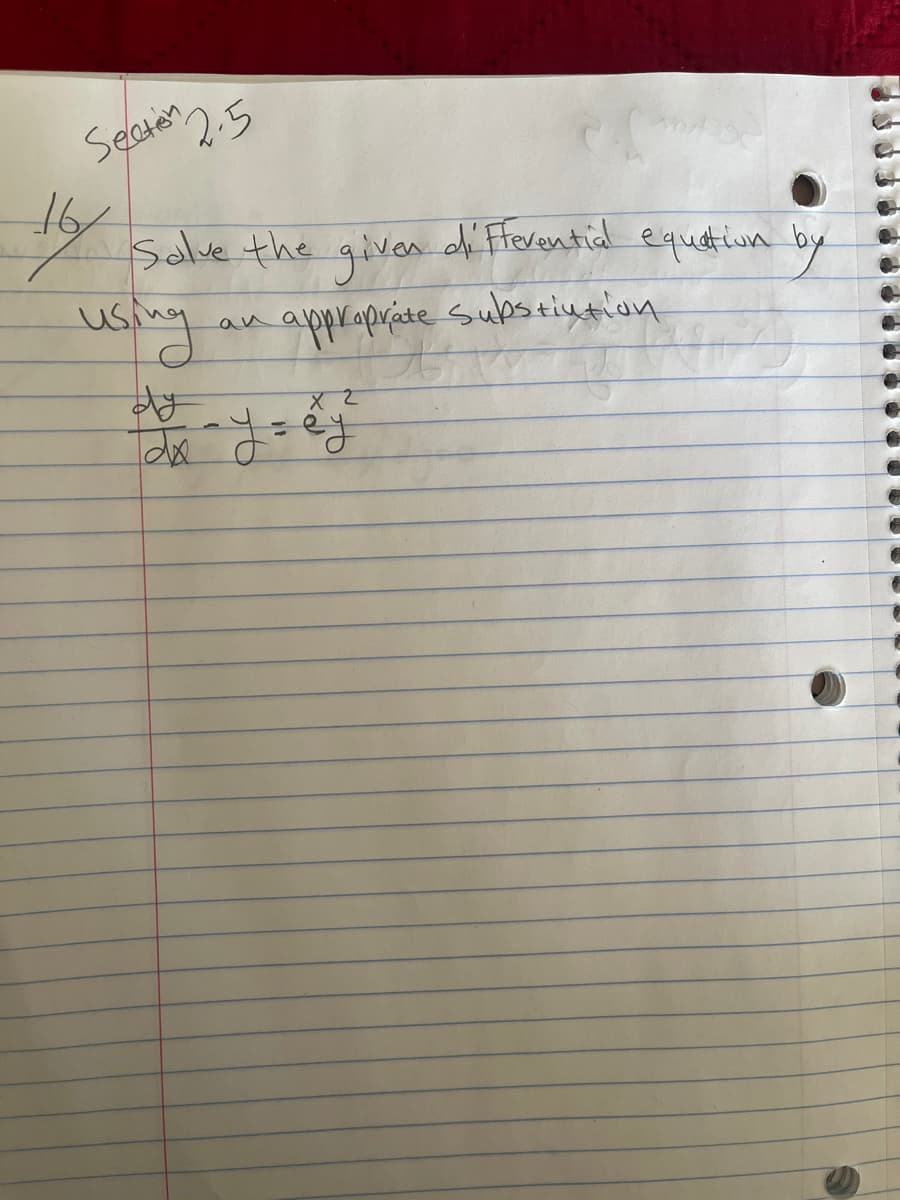 Section 2.5
16/
Solve the given differential equation by
using an appropriate substiution
dy/dx - y = e^x y^2